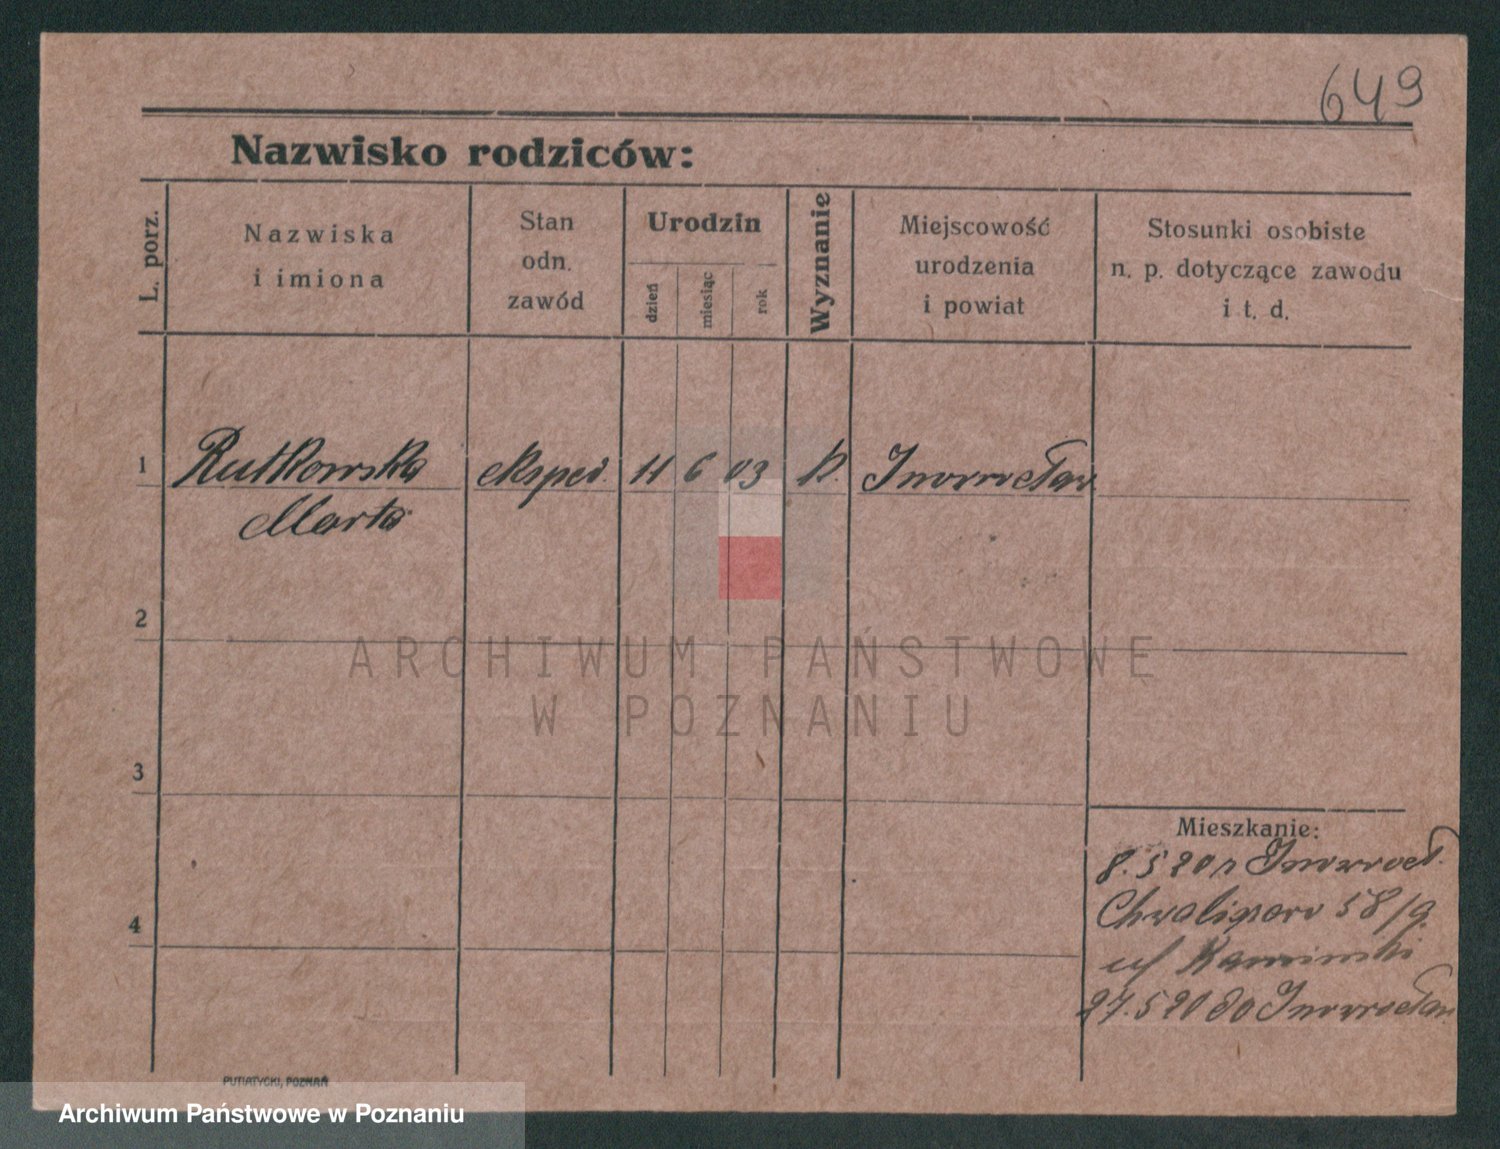 649
Nazwisko rodziców:
L. porz.
Nazwiska
i imiona
Stan
odn.
zawód
Urodzin
dzień
miesiąc
rok
Wyznanie
Miejscowość
urodzenia
i powiat
Stosunki osobiste
n. p. dotyczące zawodu
i t. d.
1 Rutkowska eksped. 11 6 03 k. Inowrocław
Marta
2
ARCHIWUM PAŃSTWOWE
W POZNANIU
3
Mieszkanie:
8.5 20 z Inowrocł.
Chwaliszewo 58/9.
4
u/ Kamiński
27.5 20 do Inowrocław
PUTIATYCKI, POZNAŃ
Archiwum Państwowe w Poznaniu